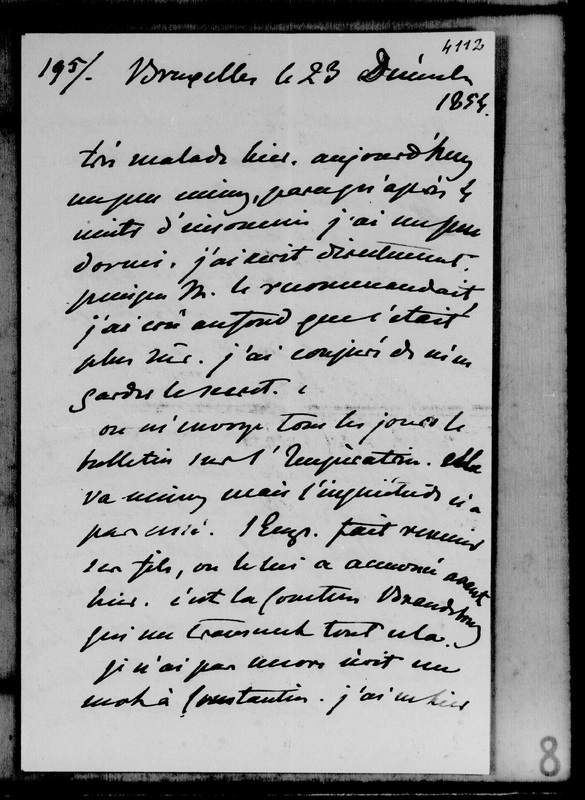 4112
195/. Bruxelles le 23 Décembre
1854.
très malade hier. aujourd'huy
un peu mieux, parcequ'après 4
nuits d'insomnie j'ai un peu
dormi. j'ai écrit directement,
puisque M. le recommandait
j'ai cru au fond que c'était
plus sûr. j'ai conjuré de m'en
garder le secret.
on m'envoye tous les jours le
bulletin sur l'Impératrice. Elle
va mieux mais l'inquiétude n'a
pas cessé. l'Emp. fait revenir
ses fils, on le lui a annoncé avant
hier. c'est la Comtesse Brandebourg
qui me transmet tout cela.
je n'ai pas encore écrit un
mot à Constantin. j'ai vu hier
8